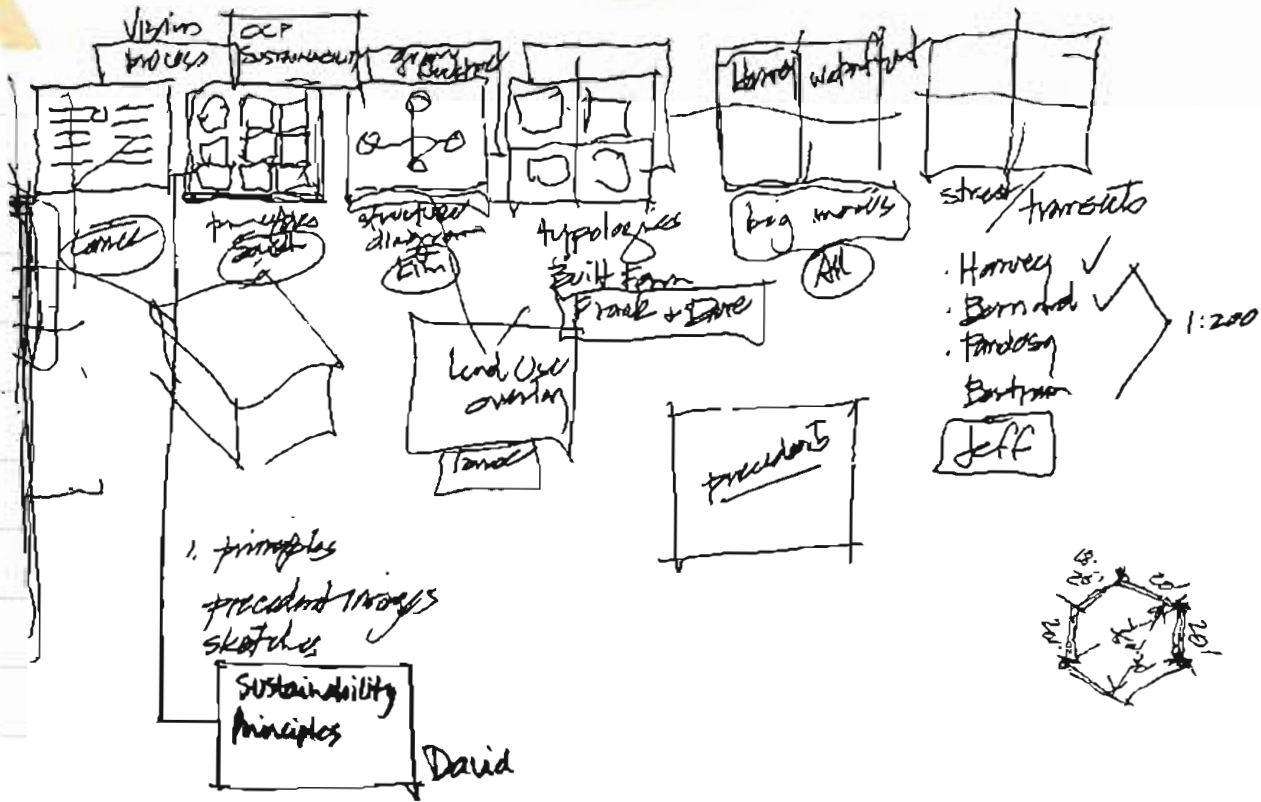 Visions
process
OCP
SUSTAINABILITY
green
Harvey waterfront
principles
structure
diagram
typologies
Built Form
Frank + Dave
big moves
All
street / transects
· Harvey ✓
· Bernard ✓
· Pandosy
Bertram
1:200
Jeff
Land Use
overlay
precedents
1. principles
precedent images
sketches
Sustainability
Principles
David
20'
20'